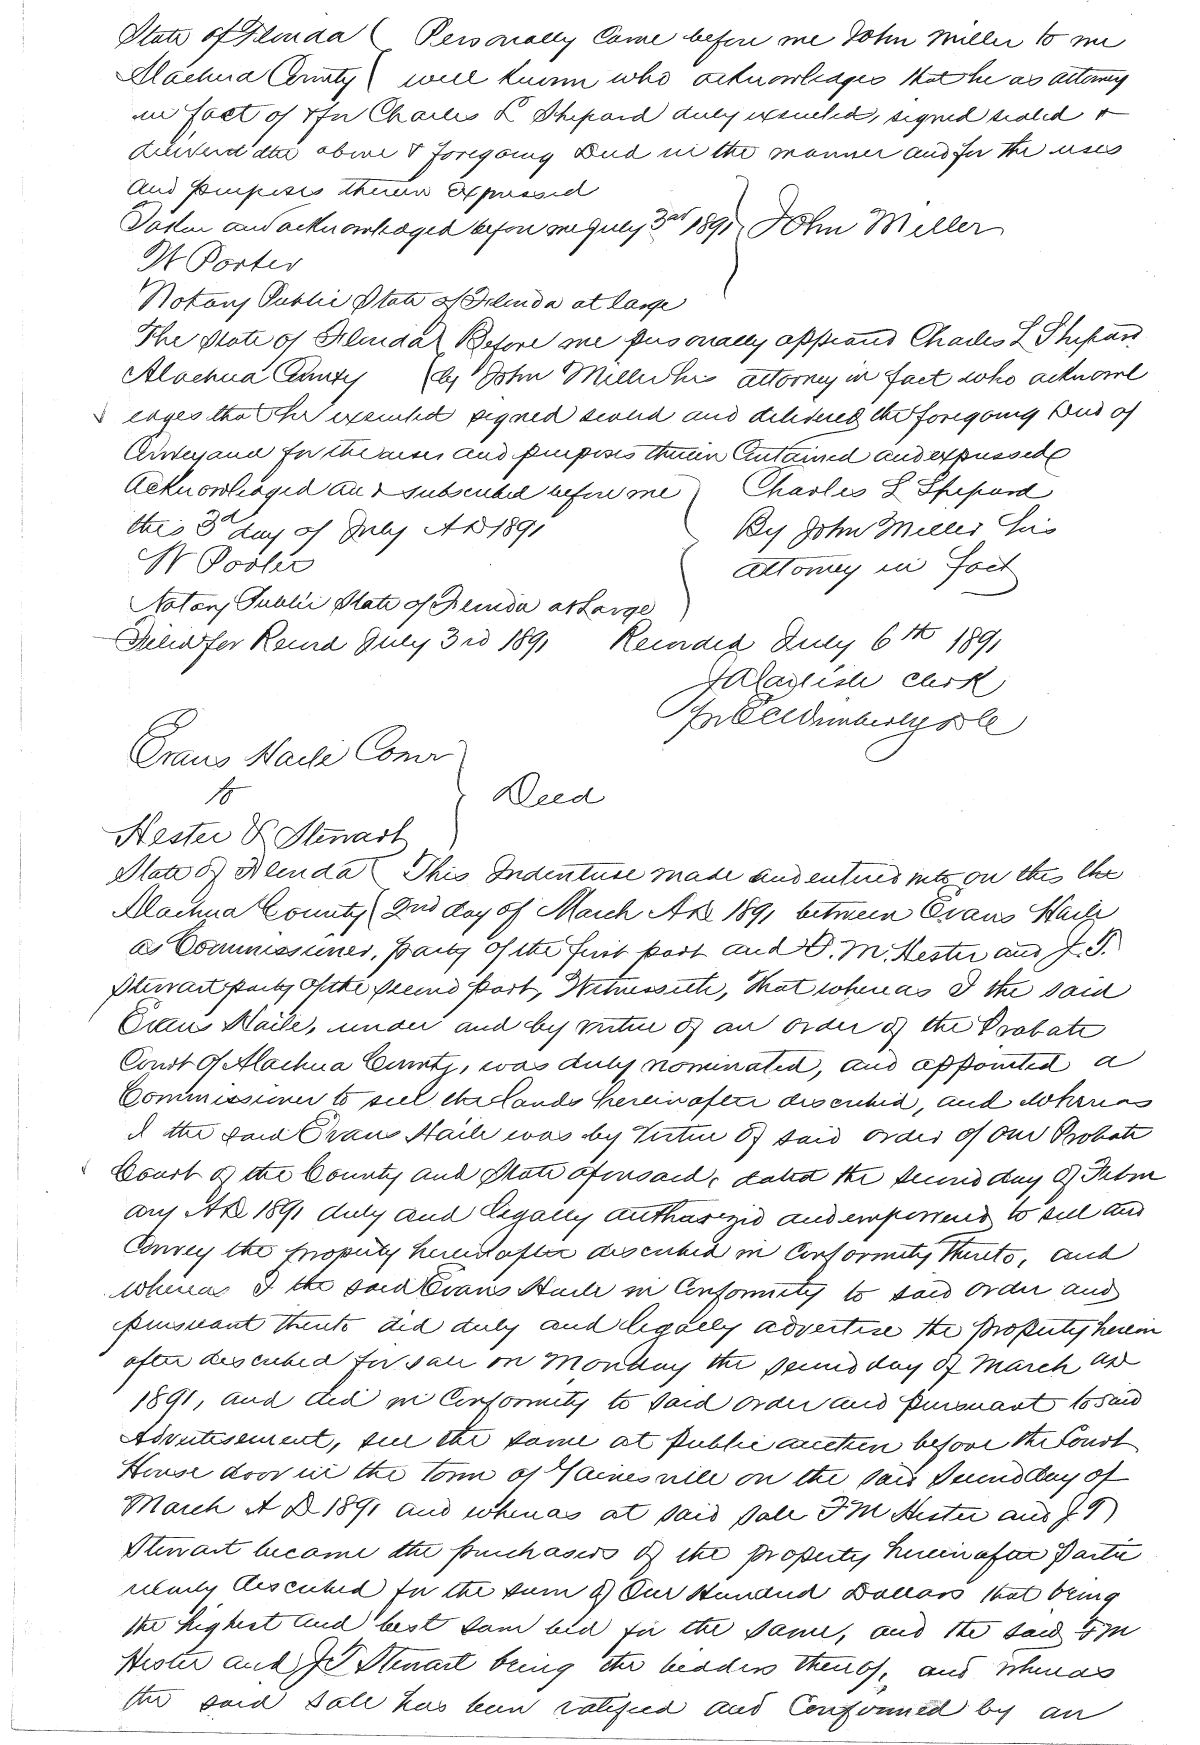 State of Florida ( Personally Came before me John Miller to me
Alachua County ( well known who acknowledges that he as attorney
in fact of & for Charles L Shepard duly executed, signed sealed &
delivered the above & foregoing Deed in the manner and for the uses
and purposes therein Expressed
Taken and acknowledged before me July 3rd 1891 John Miller
W Porter
Notary Public State of Florida at large
The State of Florida Before me personally appeared Charles L Shepard
Alachua County ( by John Miller his attorney in fact who acknowl
edges that he executed signed sealed and delivered the foregoing Deed of
Conveyance for the uses and purposes therein Contained and expressed
Acknowledged and subscribed before me Charles L Shepard
this 3d day of July AD 1891 By John Miller his
W Porter attorney in fact
Notary Public State of Florida at Large
Filed for Record July 3rd 1891 Recorded July 6th 1891
Clerk
Evans Haile Comr
to Deed
Hester & Stewart
State of Florida ( This Indenture made and entered into on this the
Alachua County ( 2nd day of March AD 1891 between Evans Haile
as Commissioner, party of the first part and F. M. Hester and J. T.
Stewart party of the second part, Witnesseth, That whereas I the said
Evans Haile, under and by virtue of an order of the Probate
Court of Alachua County, was duly nominated, and appointed a
Commissioner to sell the lands hereinafter described, and whereas
I the said Evans Haile was by Virtue of said order of our Probate
Court of the County and State aforesaid, dated the second day of Febru
ary AD 1891 duly and legally authorized and empowered to sell and
Convey the property hereinafter described in Conformity thereto, and
whereas I the said Evans Haile in Conformity to said order and
pursuant thereto did duly and legally advertise the property herein
after described for sale on Monday the second day of March AD
1891, and did in Conformity to said order and pursuant to said
Advertisement, sell the same at public auction before the Court
House door in the town of Gainesville on the said second day of
March A D 1891 and whereas at said sale F M Hester and J T
Stewart became the purchasers of the property hereinafter Partic
ularly described for the sum of One Hundred Dollars that being
the highest and best sum bid for the same, and the said F M
Hester and J T Stewart being the bidders thereof, and whereas
the said sale has been ratified and Confirmed by an